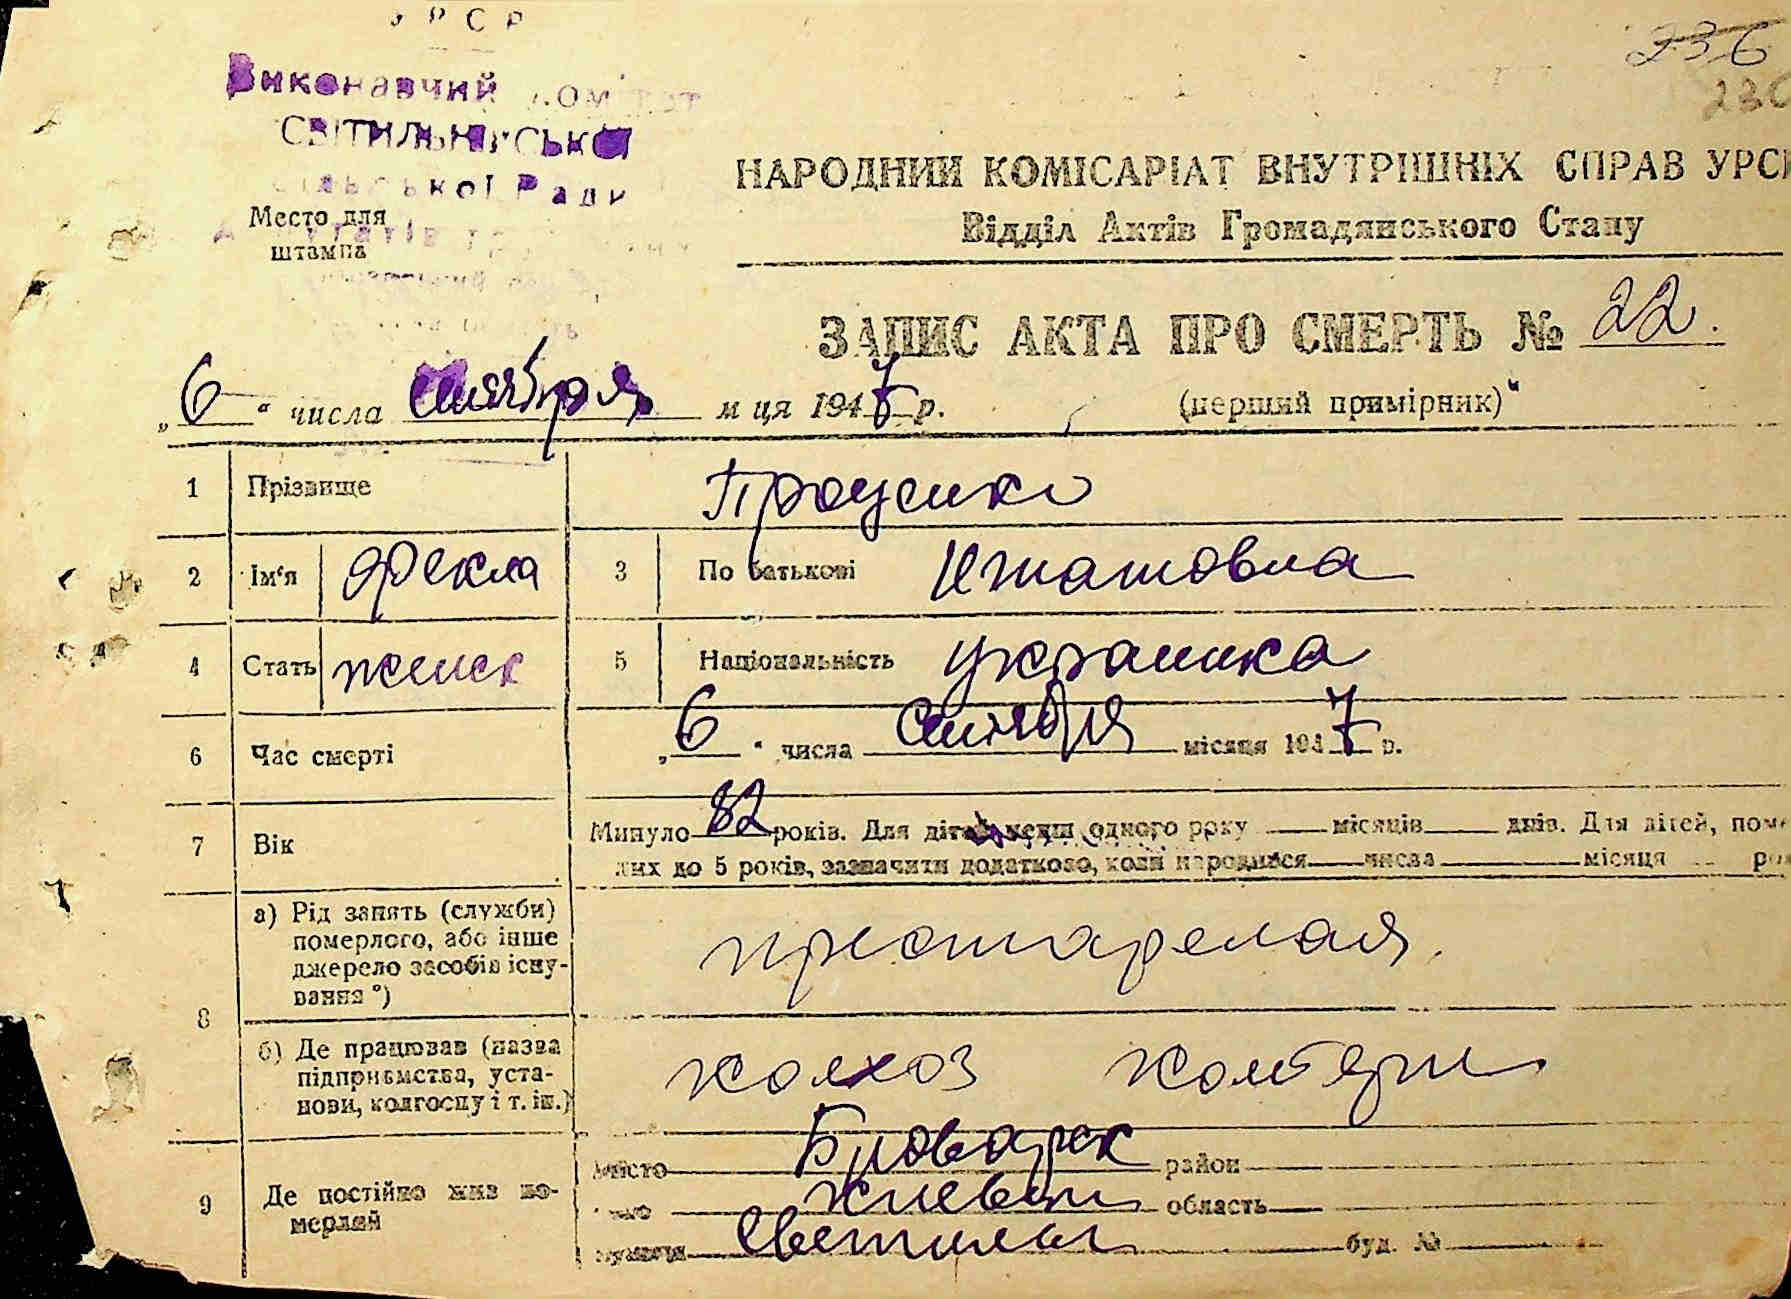 УРСР
236
Виконавчий комітет
236
Світильнівської
сільської Ради
НАРОДНИЙ КОМІСАРІАТ ВНУТРІШНІХ СПРАВ УРСР
Место для
штампа
Відділ Актів Громадянського Стану
ЗАПИС АКТА ПРО СМЕРТЬ № 22.
„6“ числа сентября м ця 1947 р. (перший примірник)“
1 Прізвище Проценко
2 Ім‘я Фекла 3 По батькові Игнатовна
4 Стать женск 5 Національність украинка
6 Час смерті „6“ числа сентября місяця 1947 р.
7 Вік Минуло 82 років. Для дітей менш одного року місяців днів. Для дітей, поме
лих до 5 років, зазначити додатково, коли народився числа місяця ро
8 а) Рід занять (служби)
померлого, або інше
джерело засобів існу-
вання °)
престарелая.
б) Де працював (назва
підприємства, уста-
нови, колгоспу і т. ін.)
колхоз
9 Де постійно жив по-
мерлий
місто Броварск район
Киевск область
Светильн буд. №